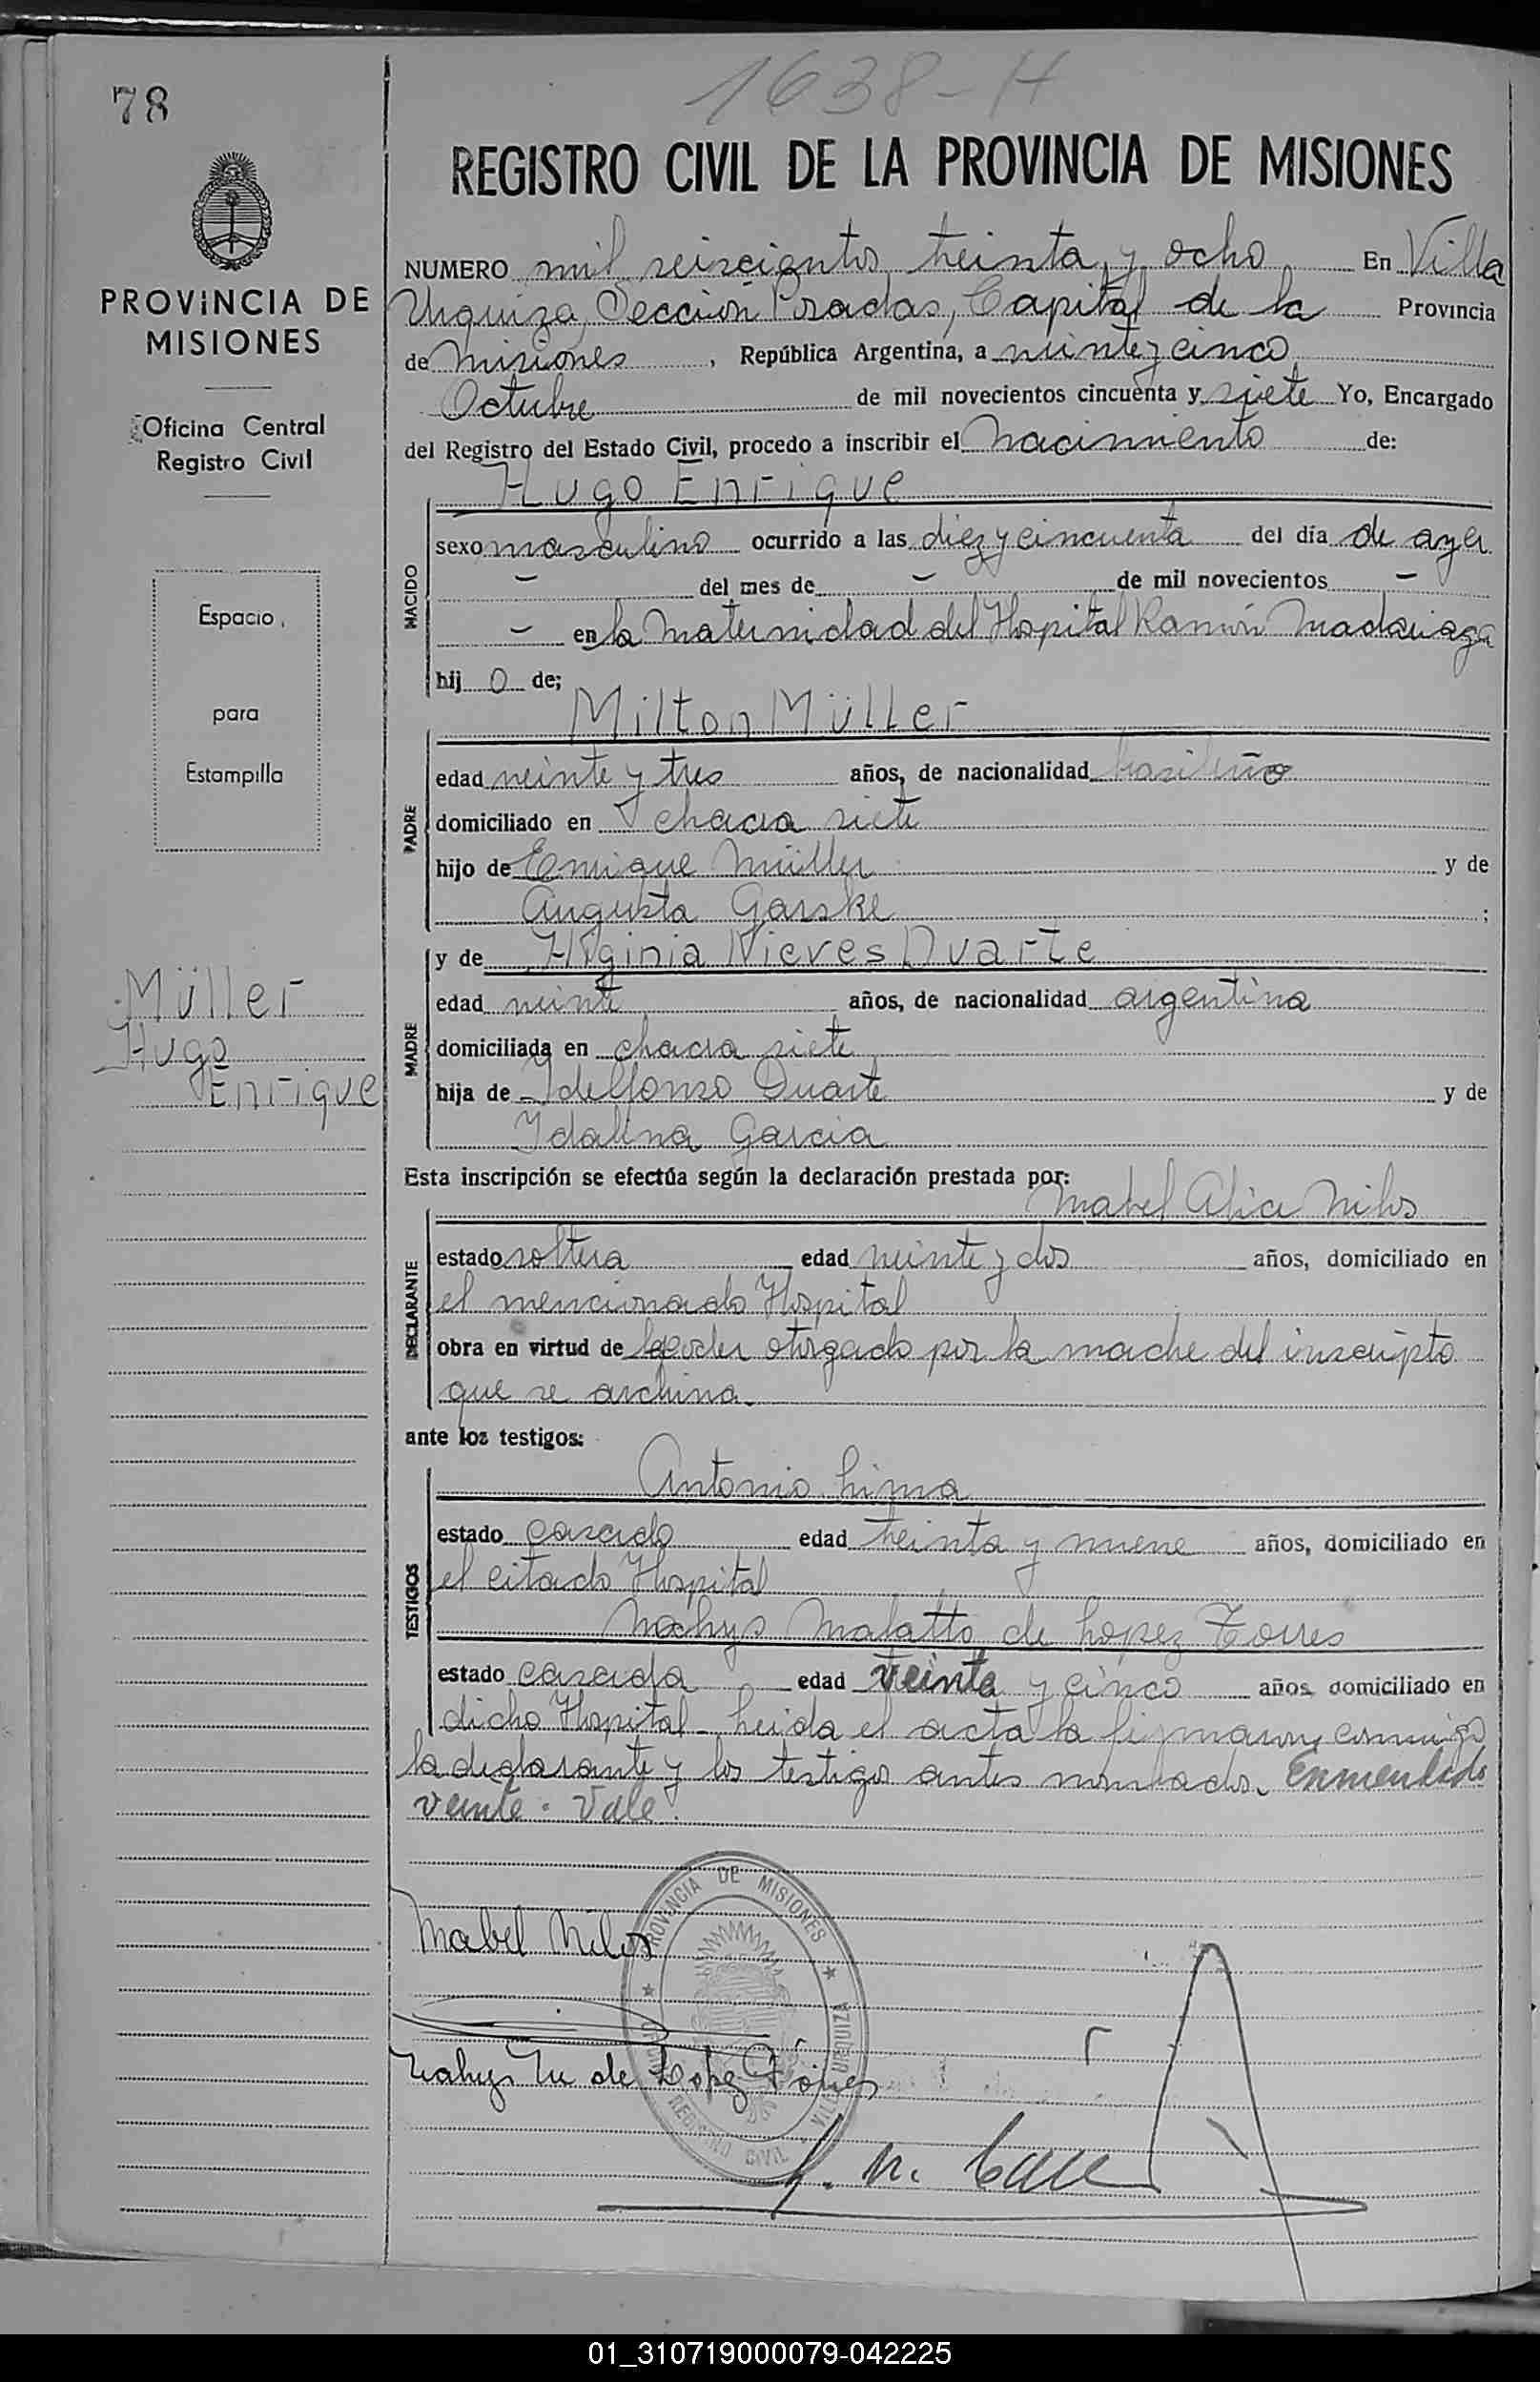 1638-H
78
REGISTRO CIVIL DE LA PROVINCIA DE MISIONES
PROVINCIA DE
MISIONES
Oficina Central
Registro Civil
Espacio
para
Estampilla
Müller
Hugo
Enrique
NUMERO mil seiscientos treinta y ocho En Villa
Urquiza, Sección Posadas, Capital de la Provincia
de Misiones, República Argentina, a veinte y cinco
Octubre de mil novecientos cincuenta y siete Yo, Encargado
del Registro del Estado Civil, procedo a inscribir el Nacimiento de:
Hugo Enrique
NACIDO
sexo masculino ocurrido a las diez y cincuenta del día de ayer
- del mes de - de mil novecientos -
- en la Maternidad del Hospital Ramón Madariaga
hij o de;
Milton Müller
PADRE
edad veinte y tres años, de nacionalidad brasileño
domiciliado en chacra siete
hijo de Enrique Müller y de
Augusta Garske ;
y de Higinia Nieves Duarte
MADRE
edad veinte años, de nacionalidad argentina
domiciliada en chacra siete
hija de Ildelfonso Duarte y de
Idalina Garcia
Esta inscripción se efectúa según la declaración prestada por:
Mabel Alice Nilos
DECLARANTE
estado soltera edad veinte y dos años, domiciliado en
el mencionado Hospital
obra en virtud de poder otorgado por la madre del inscripto
que se archiva.
ante los testigos:
Antonio Lima
TESTIGOS
estado casado edad treinta y nueve años, domiciliado en
el citado Hospital
Malatto de Lopez Torres
estado casada edad veinte y cinco años domiciliado en
dicho Hospital - Leida el acta la firmaron conmigo
la declarante y los testigos antes nombrados. Enmendado
veinte - Vale.
PROVINCIA DE MISIONES
VILLA URQUIZA
REGISTRO CIVIL
Mabel Nilos
de Lopez Torres
01_310719000079-042225